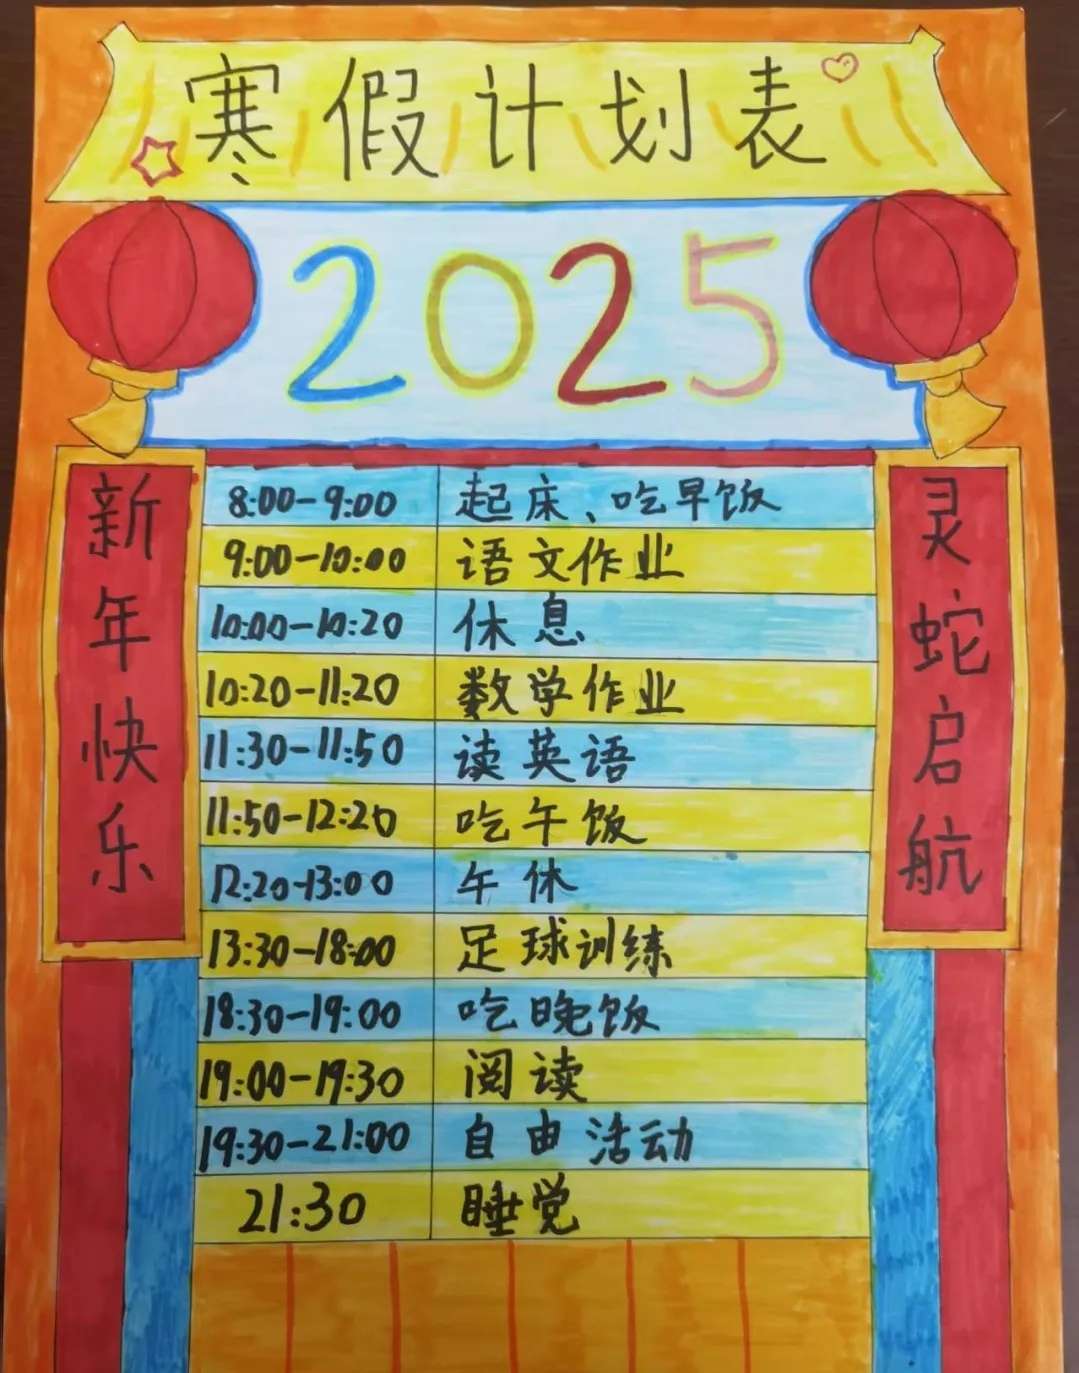 寒假计划表
2025
新年快乐
8:00-9:00 起床、吃早饭
9:00-10:00 语文作业
10:00-10:20 休息
10:20-11:20 数学作业
11:30-11:50 读英语
11:50-12:20 吃午饭
12:20-13:00 午休
13:30-18:00 足球训练
18:30-19:00 吃晚饭
19:00-19:30 阅读
19:30-21:00 自由活动
21:30 睡觉
灵蛇启航